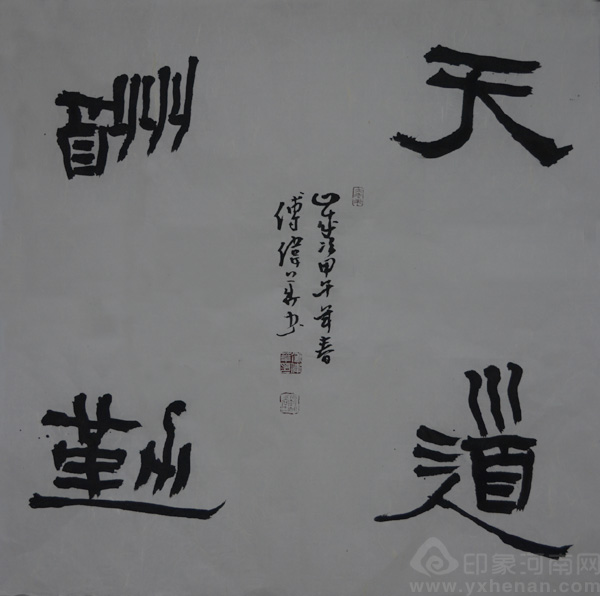 天道
酬勤
岁次甲午年春
傅伟
书
印象河南网
www.yxhenan.com